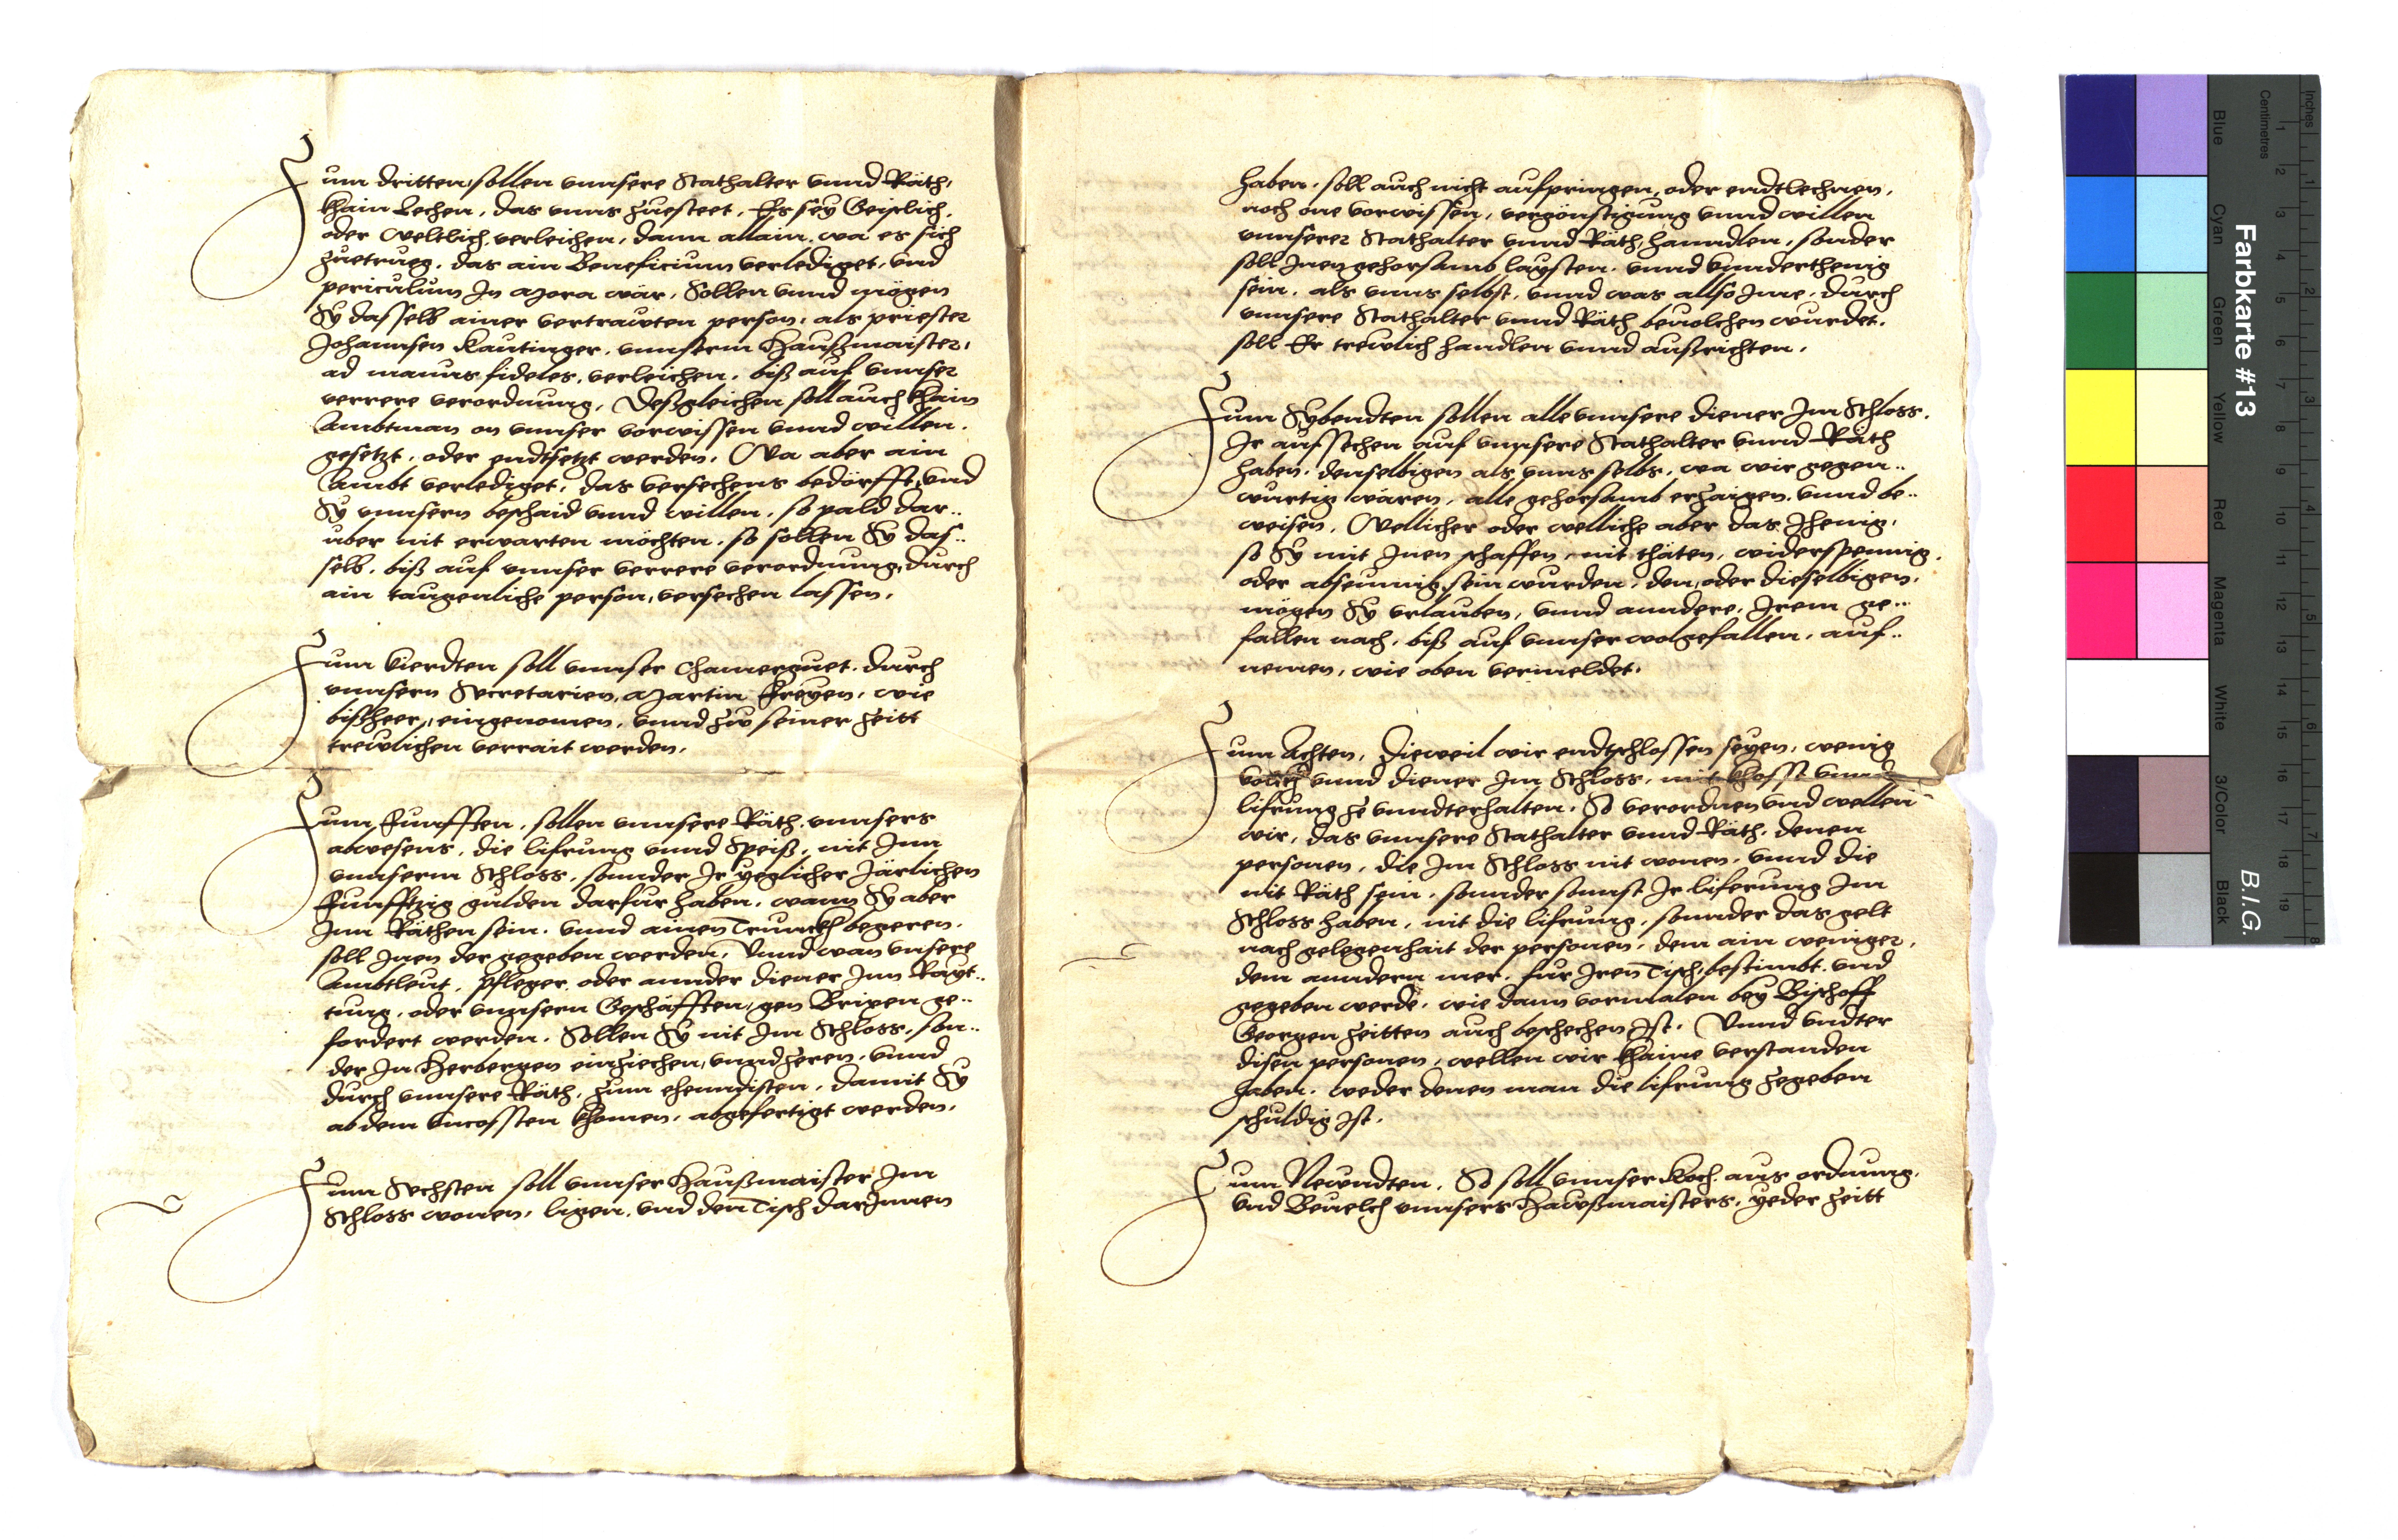 Zum dritten, sollen vnnsere Stathalter vnnd Räth,
khain Lechen, das vnns zuesteet, Es sey Geistlich,
oder Weltlich, verleichen, dann allain, wa es sich
zuetrueg, das ain Beneficium verlediget, vnd
periculum In Mora wär, Sollen vnnd mögen
Sy dasselb ainer vertrawten person, als priester
Johannsen Kautinger, vnnserm Haußmaister,
ad manus fideles, verleichen, biß auf vnnser
verrere verordnung, Deßgleichen soll auch khain
Ambtman on vnnser vorwissen vnnd willen,
gesetzt, oder endtsetzt werden, Wa aber ain
Ambt verlediget, das versechens bedörfft, vnd
Sy vnnsern beschaid vnnd willen, so pald dar..
über nit erwarten möchten, so sollen Sy das..
selb, biß auf vnnser verrere verordnung, durch
ain taugenliche person, versechen lassen,
Zum Vierdten soll vnnser Chamerguet, durch
vnnsern Secretarien, Martin Freyen, wie
bißheer, eingenomen, vnnd zu seiner Zeitt
trewlichen verrait werden,
Zum Funfften, sollen vnnsere Räth, vnnsers
abwesens, die lifrung vnnd Speiß, nit Inn
vnnserm Schloss, sonnder Ir yeglicher Järlichen
Funfftzig gulden darfur haben, wann Sy aber
Inn Räthen sein, vnnd ainen Trunckh begeren,
soll Inen der gegeben werden, Vnnd wan vnsere
Ambtleut, Pfleger, oder annder diener Inn Rayt..
tung, oder vnnsern Geschäfften, gen Brixen ge..
fordert werden, Sollen Sy nit Im Schloss, son..
der In Herbergen einziechen, vnnd zeren, vnnd
durch vnnsere Räth, zum ehenndisten, damit Sy
ab dem Vncossten khomen, abgefertigt werden,
Zum Sechsten soll vnnser Haußmaister Im
Schloss wonen, ligen, vnd den Tisch darInnen
haben, soll auch nicht aufpringen, oder endtlechnen,
noch one vorwissen, vergönstigung vnnd willen
vnnserer Stathalter vnnd Räth, hanndlen, sonder
soll Inen gehorsamb laysten, vnnd vnnderthenig
sein, als vnns selbst, vnnd was allso Ime, durch
vnnsere Stathalter vnnd Räth beuolchen wurdet,
soll Er trewlich handlen vnnd außrichten,
Zum Sybendten sollen alle vnnsere diener Im Schloss,
Ir aufsechen auf vnnsere Stathalter vnnd Räth
haben, denselbigen als vnns selbs, wa wir gegen..
wurtig wären, alle gehorsamb erzaigen, vnnd be..
weisen, Wellicher oder welliche aber das Jhenig,
so Sy mit Inen schaffen, nit thäten, widerspennig,
oder abseumig sein wurden, den, oder dieselbigen,
mögen Sy vrlauben, vnnd anndere, Irem ge..
fallen nach, biß auf vnnser wolgefallen, auf..
nemen, wie oben vermeldet,
Zum Achten, Dieweil wir endtschlossen seyen, wenig
volckh vnnd diener Im Schloss, mit khosst vnnd
lifrung ze vnndterhalten, So verordnen vnd wellen
wir, das vnnsere Stathalter vnnd Räth, denen
personen, die Im Schloss nit wonen, vnnd die
nit Räth sein, sonnder sonnst Ir liferung Im
Schloss haben, nit die lifrung, sonnder das gelt
nach gelegenhait der personen, dem ain weniger,
dem anndern mer, fur Iren Tisch, bestimbt, vnd
gegeben werde, wie dann vormalen bey Bischoff
Georgen Zeitten auch beschechen Ist, Vnnd vndter
disen personen, wellen wir khaine verstanden
haben, weder denen man die lifrung zegeben
schuldig Ist,
Zum Newndten, So soll vnnser Koch, aus ordnung,
vnd Beuelch vnnsers Hawßmaisters, yeder Zeitt
Farbkarte #13
B.I.G.
Inches
Centimetres
1 2 3 4 5 6 7 8
1 2 3 4 5 6 7 8 9 10 11 12 13 14 15 16 17 18 19
Blue Cyan Green Yellow Red Magenta White 3/Color Black